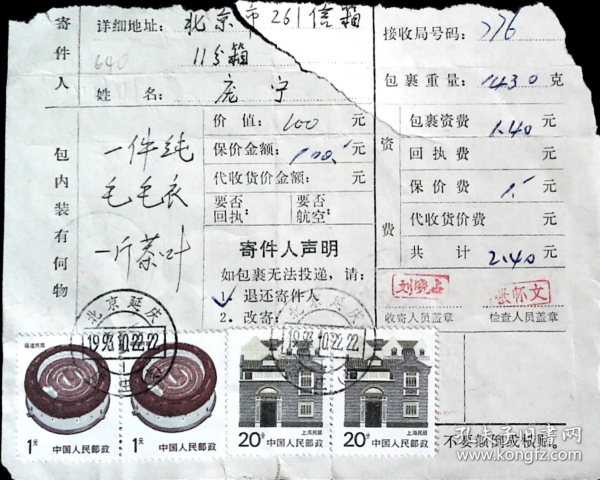 寄件人
详细地址：北京市261信箱
11分箱
640
姓名：庞宁
接收局号码：776
包裹重量：1430克
包内装有何物
一件纯
毛毛衣
一斤茶叶
价值：100元
保价金额：100元
代收货价金额：元
要否回执：
要否航空：
资费
包裹资费 1.40元
回执费 元
保价费 1.元
代收货价费 元
共计 2.40元
寄件人声明
如包裹无法投递，请：
√1. 退还寄件人
2. 改寄：
收寄人员盖章
张怀文
检查人员盖章
北京延庆
1993.10.22.22
北京延庆
1993.10.22.22
福建民居
1元 中国人民邮政
1元 中国人民邮政
上海民居
20分 中国人民邮政
上海民居
20分 中国人民邮政
不要颠倒或横贴。
孔夫子旧书网
kongfz.com